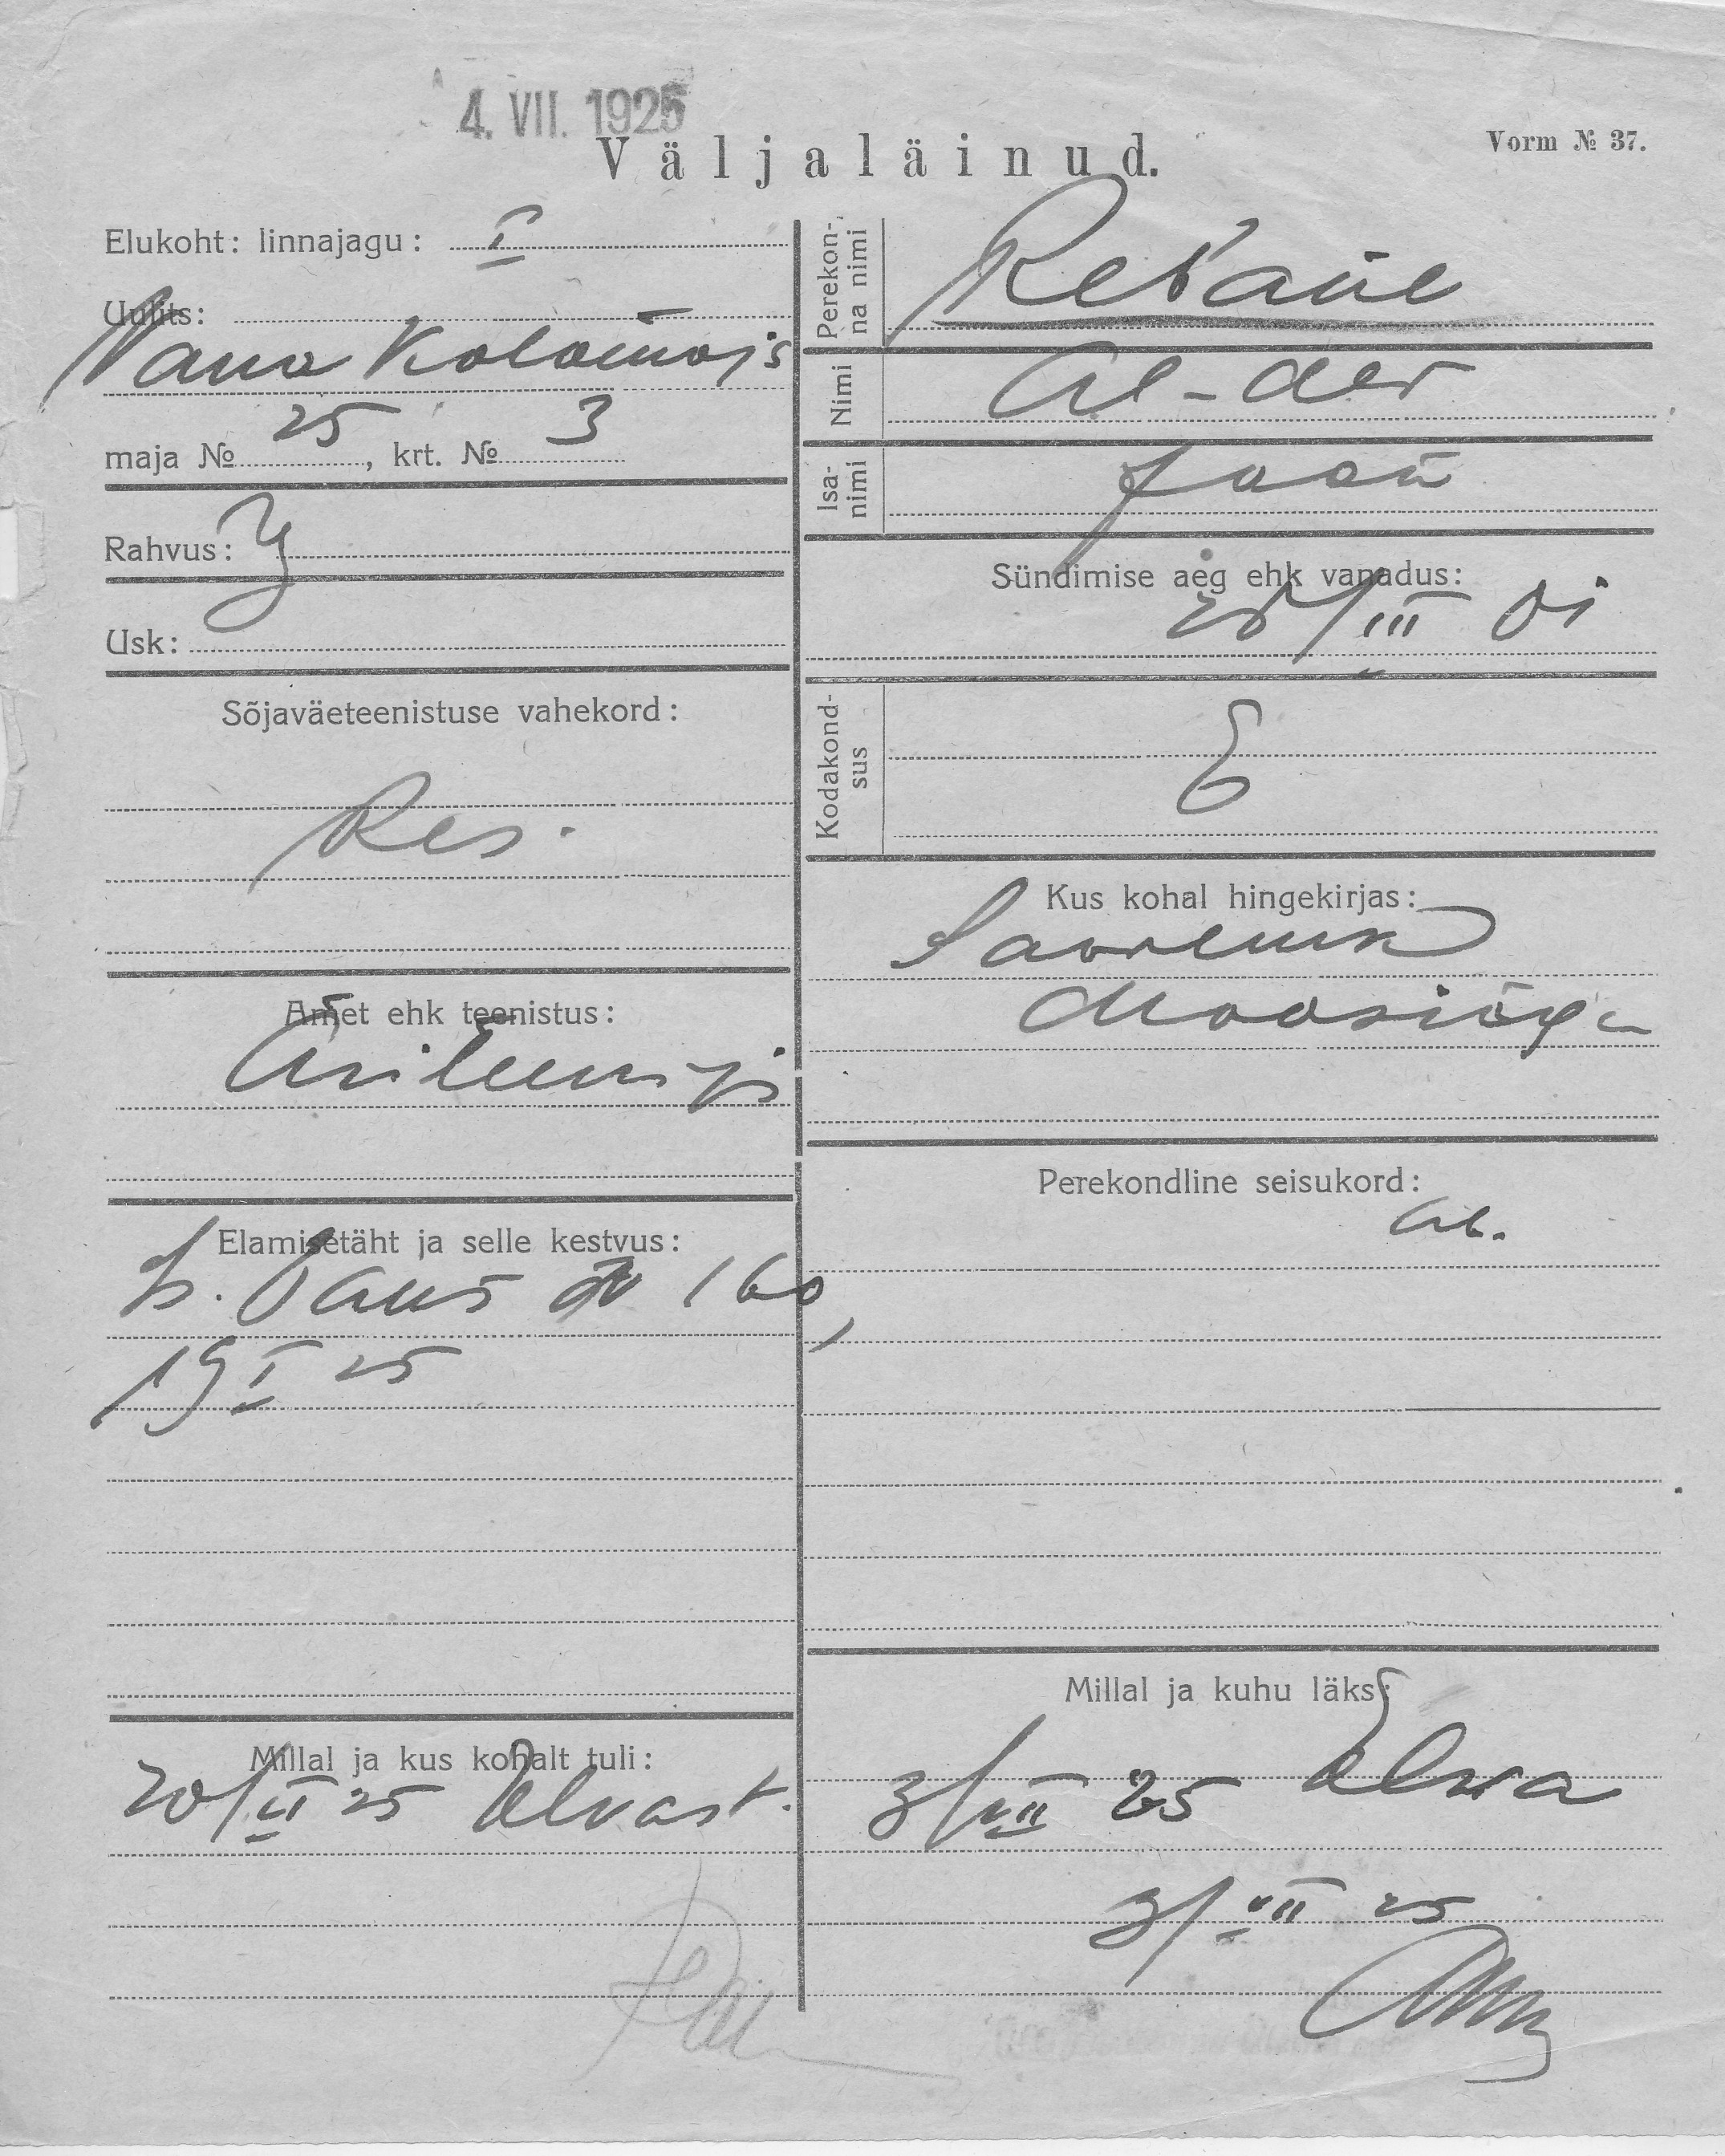 4. VII. 1925
Väljaläinud.
Vorm № 37.
Elukoht: linnajagu: I
Uulits:
Vana Kalamaja
maja № 25, krt. № 3
Rahvus:
Usk:
Sõjaväeteenistuse vahekord:
Res.
Amet ehk teenistus:
Äriteenija
Elamisetäht ja selle kestvus:
№ 160,
19 I 25
Millal ja kus kohalt tuli:
20/II 25 Elvast.
Perekonna nimi
Rebane
Nimi
Al-der
Isanimi
Jaan
Sündimise aeg ehk vanadus:
/III 01
Kodakondsus
E
Kus kohal hingekirjas:
Perekondline seisukord:
Millal ja kuhu läks:
3/VII 25 Elva
3/VII 25